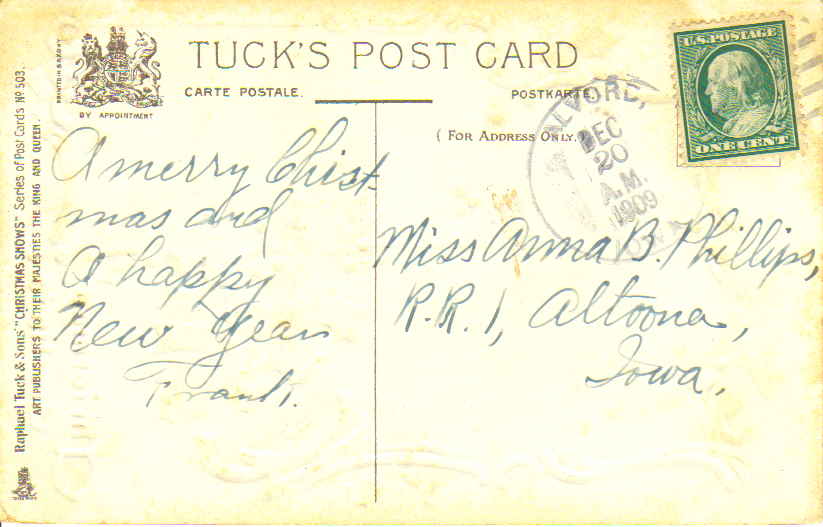 TUCK'S POST CARD
CARTE POSTALE.
POSTKARTE.
BY APPOINTMENT
( FOR ADDRESS ONLY. )
U.S. POSTAGE
ONE CENT
ALVORD,
DEC
20
A.M.
1909
IOWA
A merry Christ-
mas and
A happy
New Year
Frank.
Miss Anna B. Phillips,
R.R. 1, Altoona,
Iowa,
Raphael Tuck & Sons' "CHRISTMAS SHOWS" Series of Post Cards No 503.
ART PUBLISHERS TO THEIR MAJESTIES THE KING AND QUEEN.